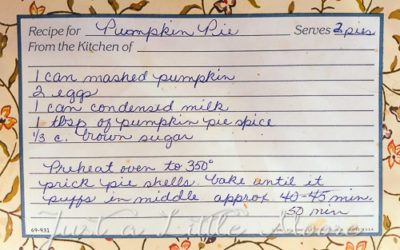 Recipe for Pumpkin Pie Serves 2 pies
From the Kitchen of
1 can mashed pumpkin
2 eggs
1 can condensed milk
1 tbsp of pumpkin pie spice
1/3 c. brown sugar
Preheat oven to 350°
prick pie shells. bake until it
puffs in middle approx 40-45 min.
50 min
Just a Little Home
69-931